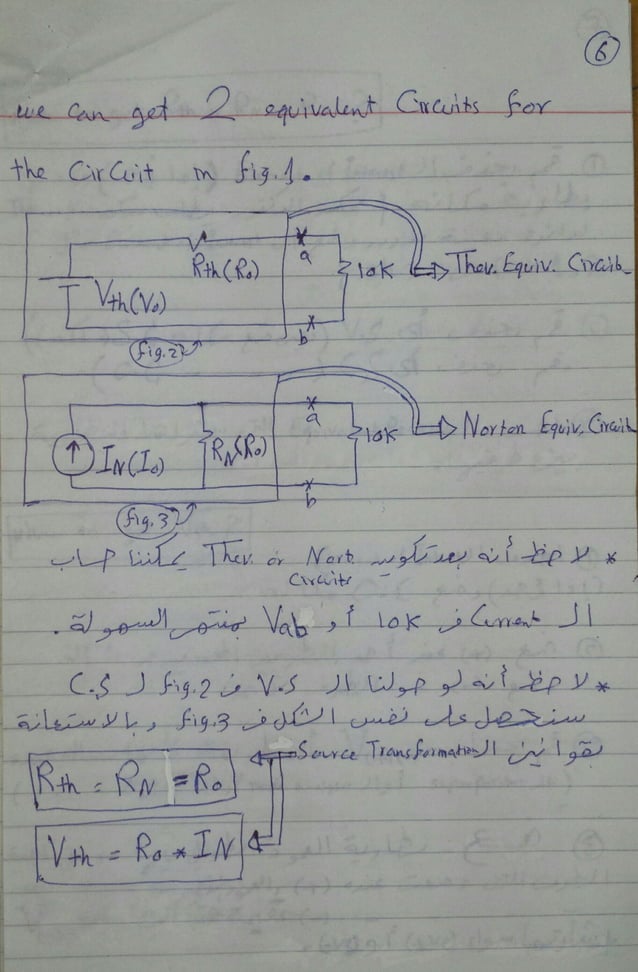 6
we can get 2 equivalent Circuits for
the Circuit in fig.1.
Rth(Ro)
a
10K
Thev. Equiv. Circuit
Vth(Vo)
b
fig.2
a
10K
Norton Equiv. Circuit
IN(Io)
RN(Ro)
b
fig.3
* لاحظ أنه بعد تكوين Thev. or Nort. يمكننا حساب
Circuits
ال Current في 10K أو Vab بمنتهى السهولة.
* لاحظ أنه لو حولنا ال V.S في fig.2 ل C.S
سنحصل على نفس الشكل في fig.3 وبالاستعانة
بقوانين ال Source Transformation
Rth = RN = Ro
Vth = Ro * IN